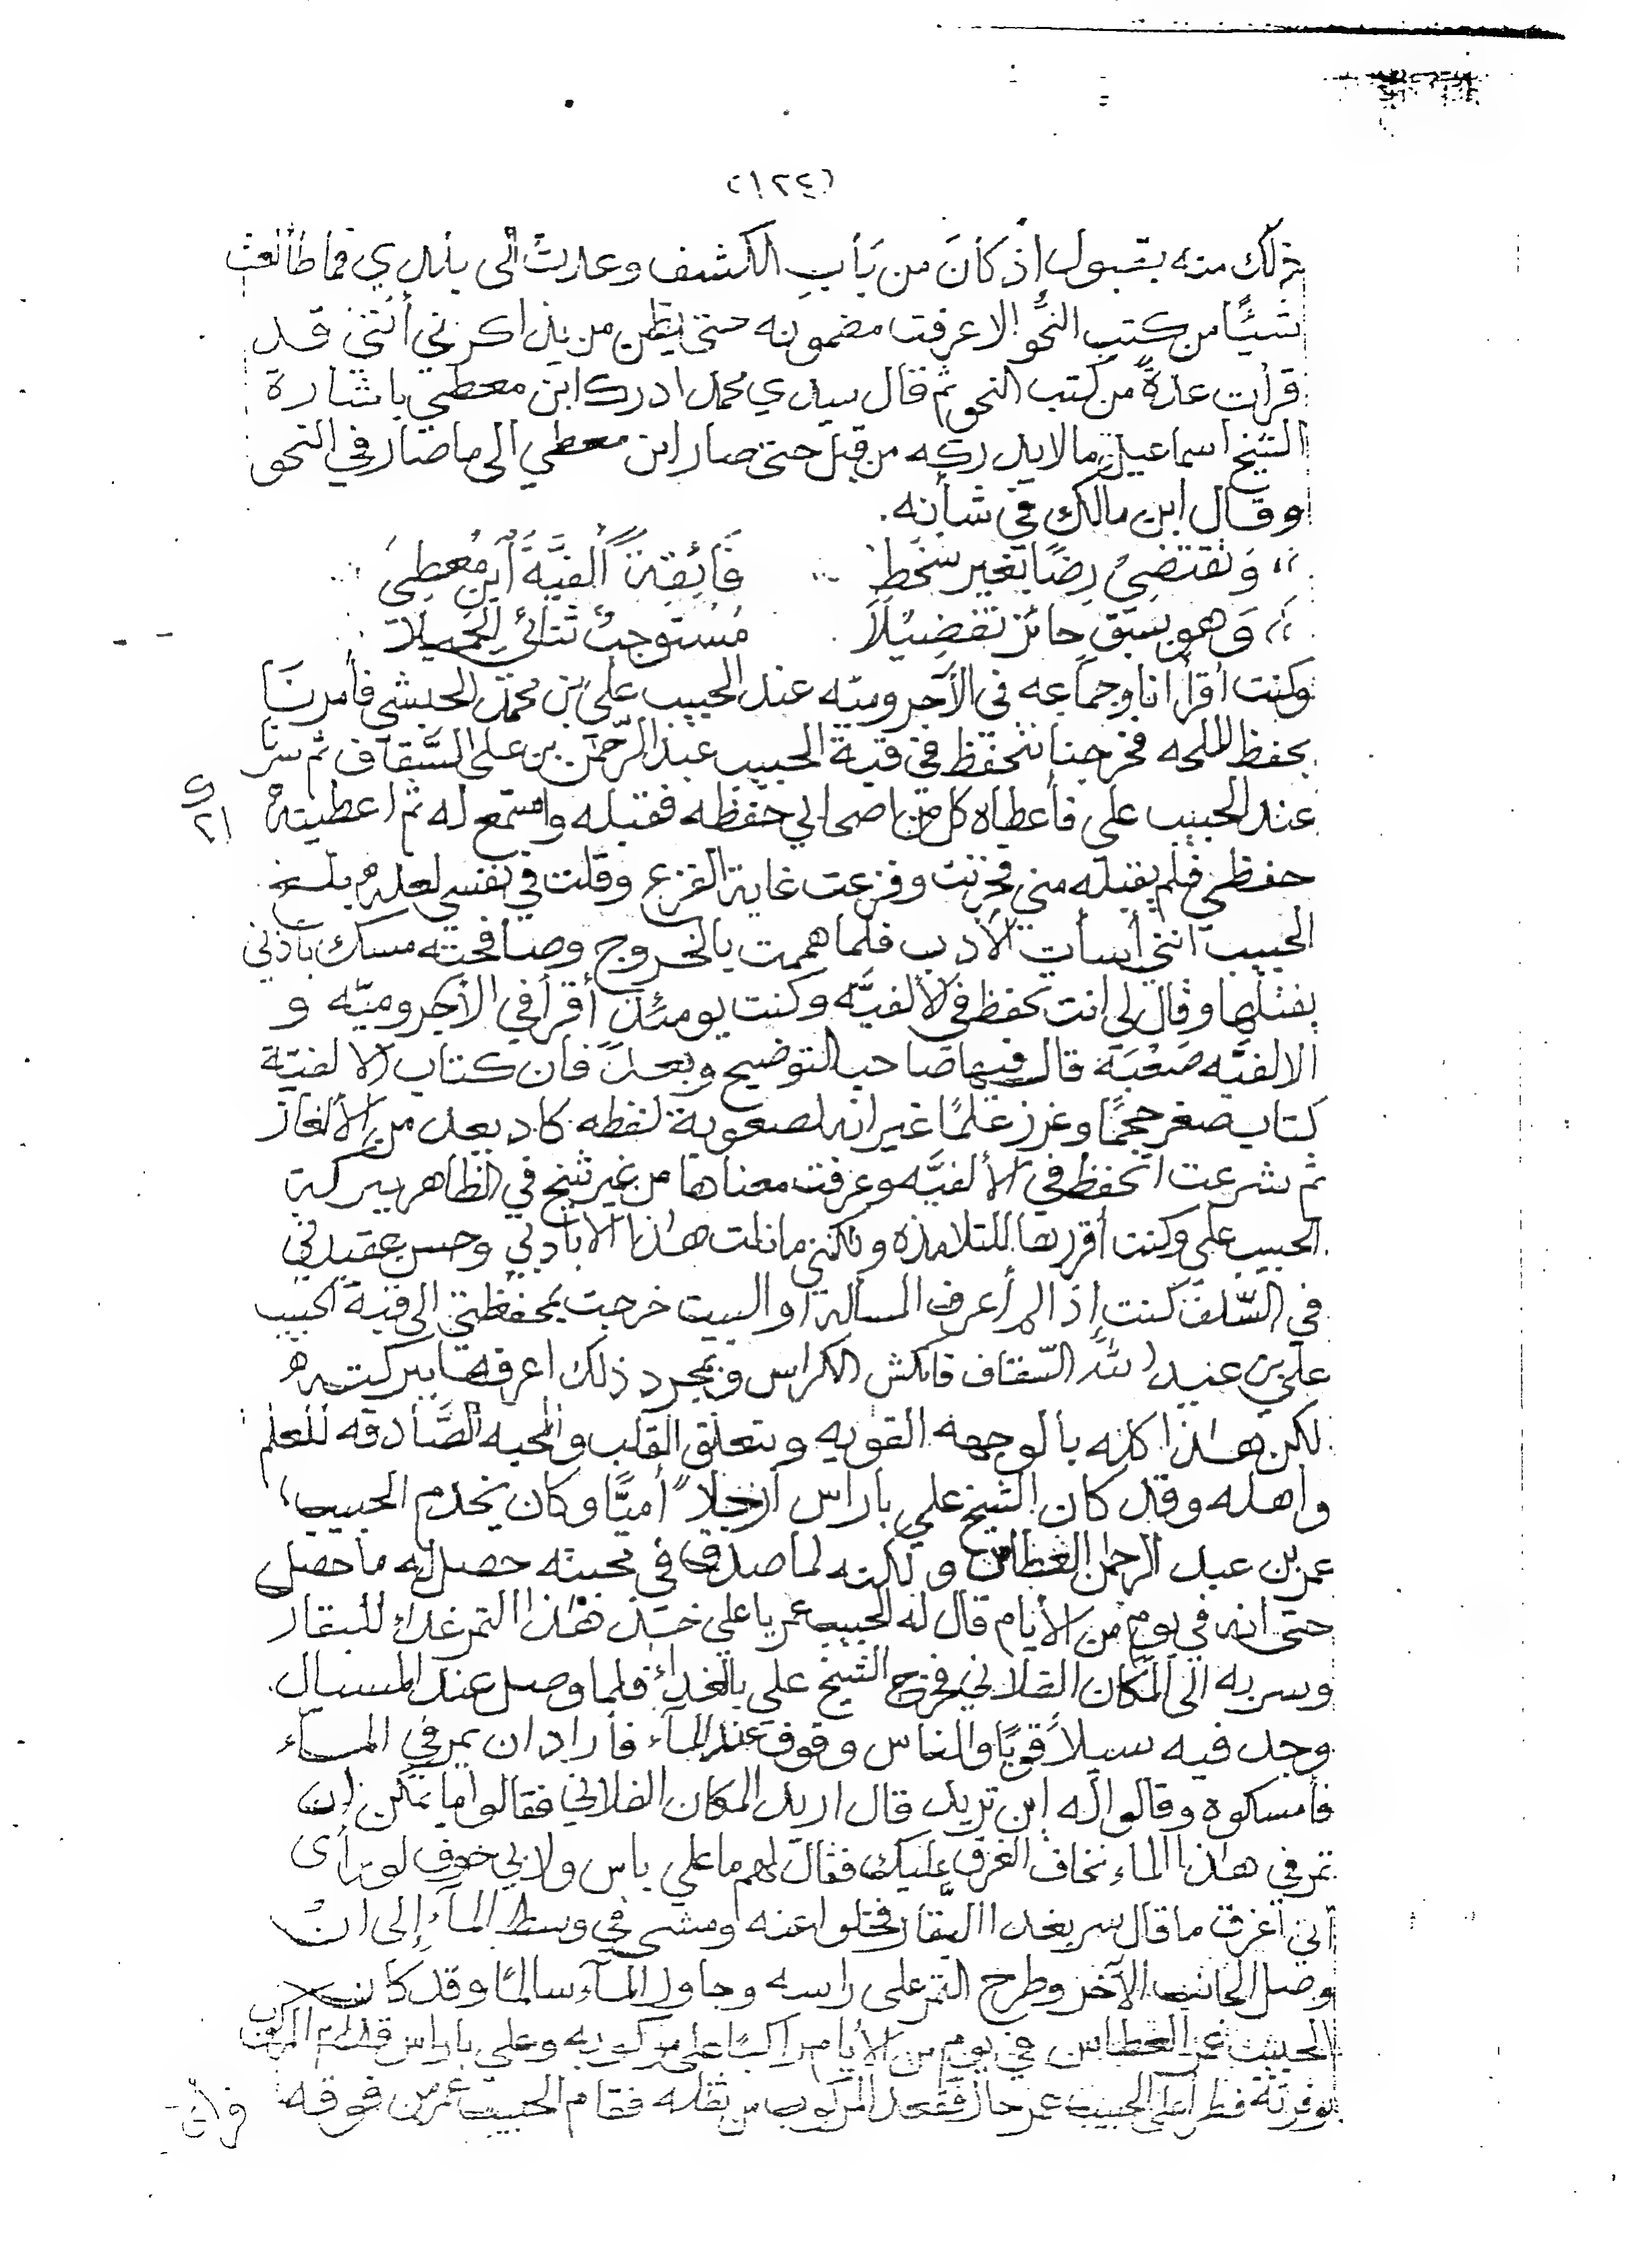 (١٢٤)
ذلك منه بقبول إذ كان من باب الكشف وعدت الى بلدي فما طالعت
شيئًا من كتب النحو الا عرفت مضمونه حتى يظن من يذاكرني أنني قد
قرأت عدةً من كتب النحو ثم قال سيدي محمد ادرك ابن معطي باشارة
الشيخ اسماعيل ما لا يدركه من قبل حتى صار ابن معطي الى ما صار في النحو
وقال ابن مالك في شأنه .
،، وَتَقتَضِيْ رِضًا بَغيرِ سُخْطِ ... فَائِقَةً أَلْفيَّةَ ابنِ مُعطِي
،، وَهو بِسَبْقٍ حائز تَفضِيْلَا . مُسْتوجبٌ ثنائيَ الجَميلَا
وكنت أقرأ انا وجماعه في الآجروميه عند الحبيب علي بن محمد الحبشي فأمرنَا
بحفظ الملحه فخرجنا نتحفظ في قبة الحبيب عبد الرّحمن بن علي السَّقاف ثم سرنا
عند الحبيب علي فأعطاه كل من اصحابي حفظه فقبله واستمع له ثم اعطيته
و
٢١
حفظي فلم يقبله مني فحزنت وفزعت غاية الفزع وقلت في نفسي لعله بلغ
الحبيب انني أسأت الأدب فلما هممت بالخروج وصافحته مسك بأذني
يفتلها وقال لي انت تحفظ في الألفيَّه وكنت يومئذ أقرأ في الآجروميّه و
الالفيَّه صَعْبَة قال فيها صاحب التوضيح وبعد فان كتاب الالفيّة
كتاب صغر حجمًا وغزر علمًا غير انه لصعوبة لفظه كاد يعد من الألغاز
ثم شرعت اتحفظ في الألفيَّه وعرفت معناها من غير شيخ في الظاهر ببركة
الحبيب علي وكنت أقررها للتلامذه ولكني ما نلت هذا الا بأدبي وحسن عقيدتي
في السّلف كنت إذا لم أعرف المسألة او البيت خرجت بمحفظتي الى قبة الحبيب
علي بن عبد اللّه السّقاف فانكش الكراس وبمجرد ذلك اعرفها ببركته
لكن هذا كله بالوجهة القويه وتعلق القلب والمحبه الصَّادقه للعلم
واهله وقد كان الشيخ علي باراس رجلاً أميًّا وكان يخدم الحبيب
عمر بن عبد الرحمن العطاس ولكنه لما صدق في محبته حصل له ما حصل
حتى انه في يوم من الأيام قال له الحبيب عمر يا علي خذ هذا التمر غداء للبقار
وسر به الى المكان الفلاني فخرج الشيخ علي بالغداء فلما وصل عند المسيال
وجد فيه سيلاً قويًا والناس وقوف عند الماء فأراد ان يمر في الماء
فأمسكوه وقالوا له اين تريد قال اريد المكان الفلاني فقالوا ما يمكن ان
تمر في هذا الماء نخاف الغرق عليك فقال لهم ما علي باس ولا بي خوف لو رأى
أني أغرق ما قال سر بغداء البقار فخلوا عنه ومشى في وسط الماء إلى انْ
وصل الجانب الآخر وطرح التمر على راسه وجاوز الماء سالمًا وقد كان
الحبيب عمر العطاس في يوم من الأيام راكبًا على مركوبه وعلي باراس قدام المركوب
بوفرته فطرأ على الحبيب عمر حال فقعد المركوب من ثقله فقام الحبيب عمر من فوقه
فرأى